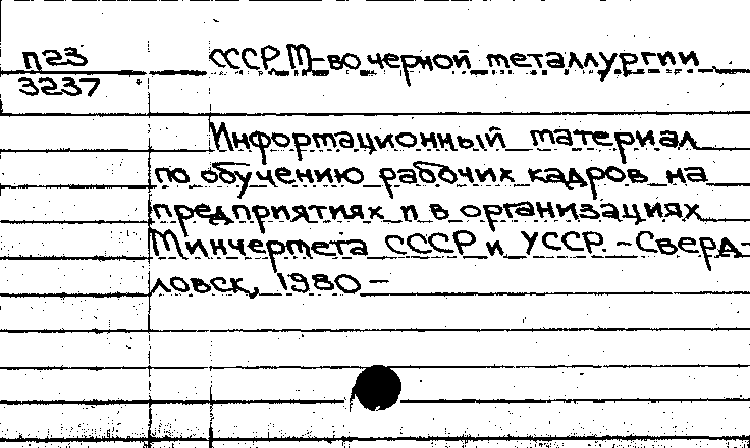 П23
3237
СССР М-во черной металлургии
Информационный материал
по обучению рабочих кадров на
предприятиях и в организациях
Минчермета СССР и УССР. - Сверд-
ловск, 1980 -